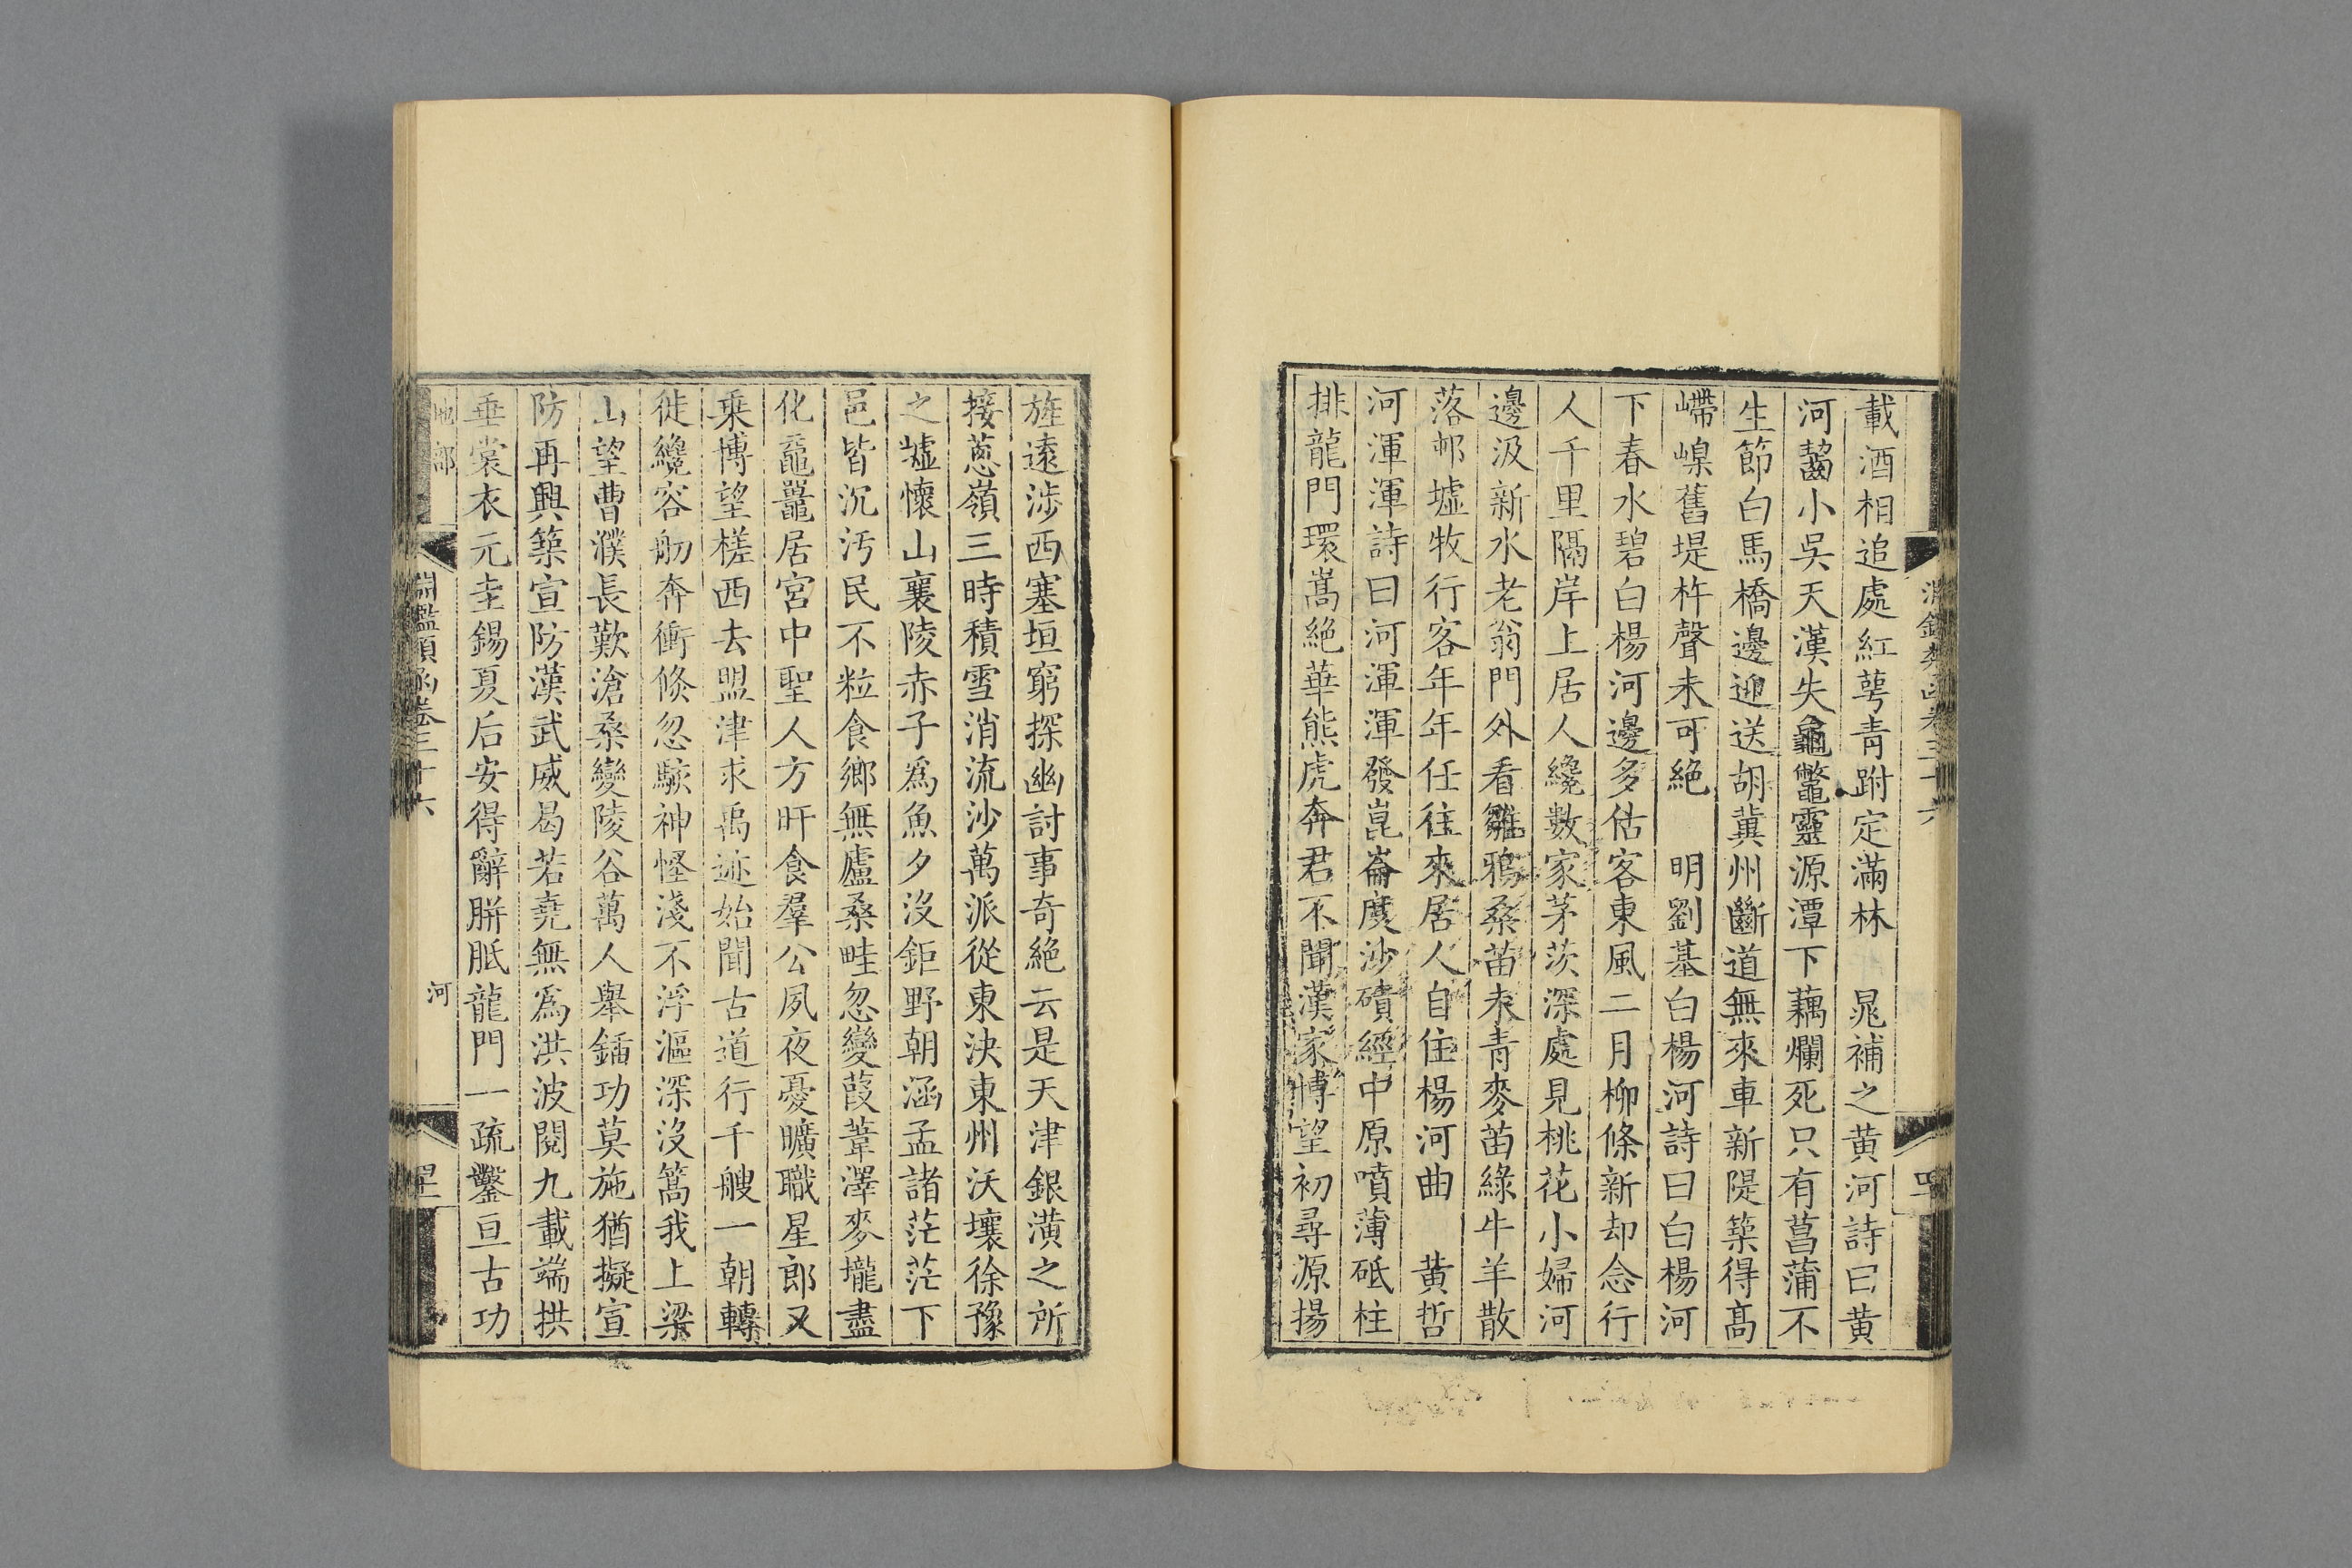 載酒相追處紅萼青跗定滿林　晁補之黄河詩曰黄
河齧小吳天漢失龜鼈靈源潭下藕爛死只有菖蒲不
生節白馬橋邊迎送胡冀州斷道無來車新隄築得髙
嵽嵲舊堤杵聲未可絶　明劉基白楊河詩曰白楊河
下春水碧白楊河邊多估客東風二月柳條新却念行
人千里隔岸上居人纔數家茅茨深處見桃花小婦河
邊汲新水老翁門外看雛鴉桑苗未青麥苗綠牛羊散
落邨墟牧行客年年任往來居人自住楊河曲　黄哲
河渾渾詩曰河渾渾發崑崙度沙磧經中原噴薄砥柱
排龍門環嵩絶華熊虎奔君不聞漢家博望初尋源揚
旌遠涉西塞垣窮探幽討事奇絶云是天津銀潢之所
接蔥嶺三時積雪消流沙萬派從東決東州沃壤徐豫
之墟懷山襄陵赤子爲魚夕沒鉅野朝涵孟諸茫茫下
邑皆沉汚民不粒食鄉無廬桑畦忽變葭葦澤麥壠盡
化黿鼉居宮中聖人方旰食羣公夙夜憂曠職星郎又
乗博望槎西去盟津求禹迹始聞古道行千艘一朝轉
徙纔容舠奔衝倏忽駭神怪淺不浮漚深沒篙我上梁
山望曹濮長歎滄桑變陵谷萬人舉鍤功莫施猶擬宣
防再興築宣防漢武威曷若堯無爲洪波閱九載端拱
垂裳衣元圭錫夏后安得辭胼胝龍門一疏鑿亘古功
地部
淵鑑類函卷三十六
河